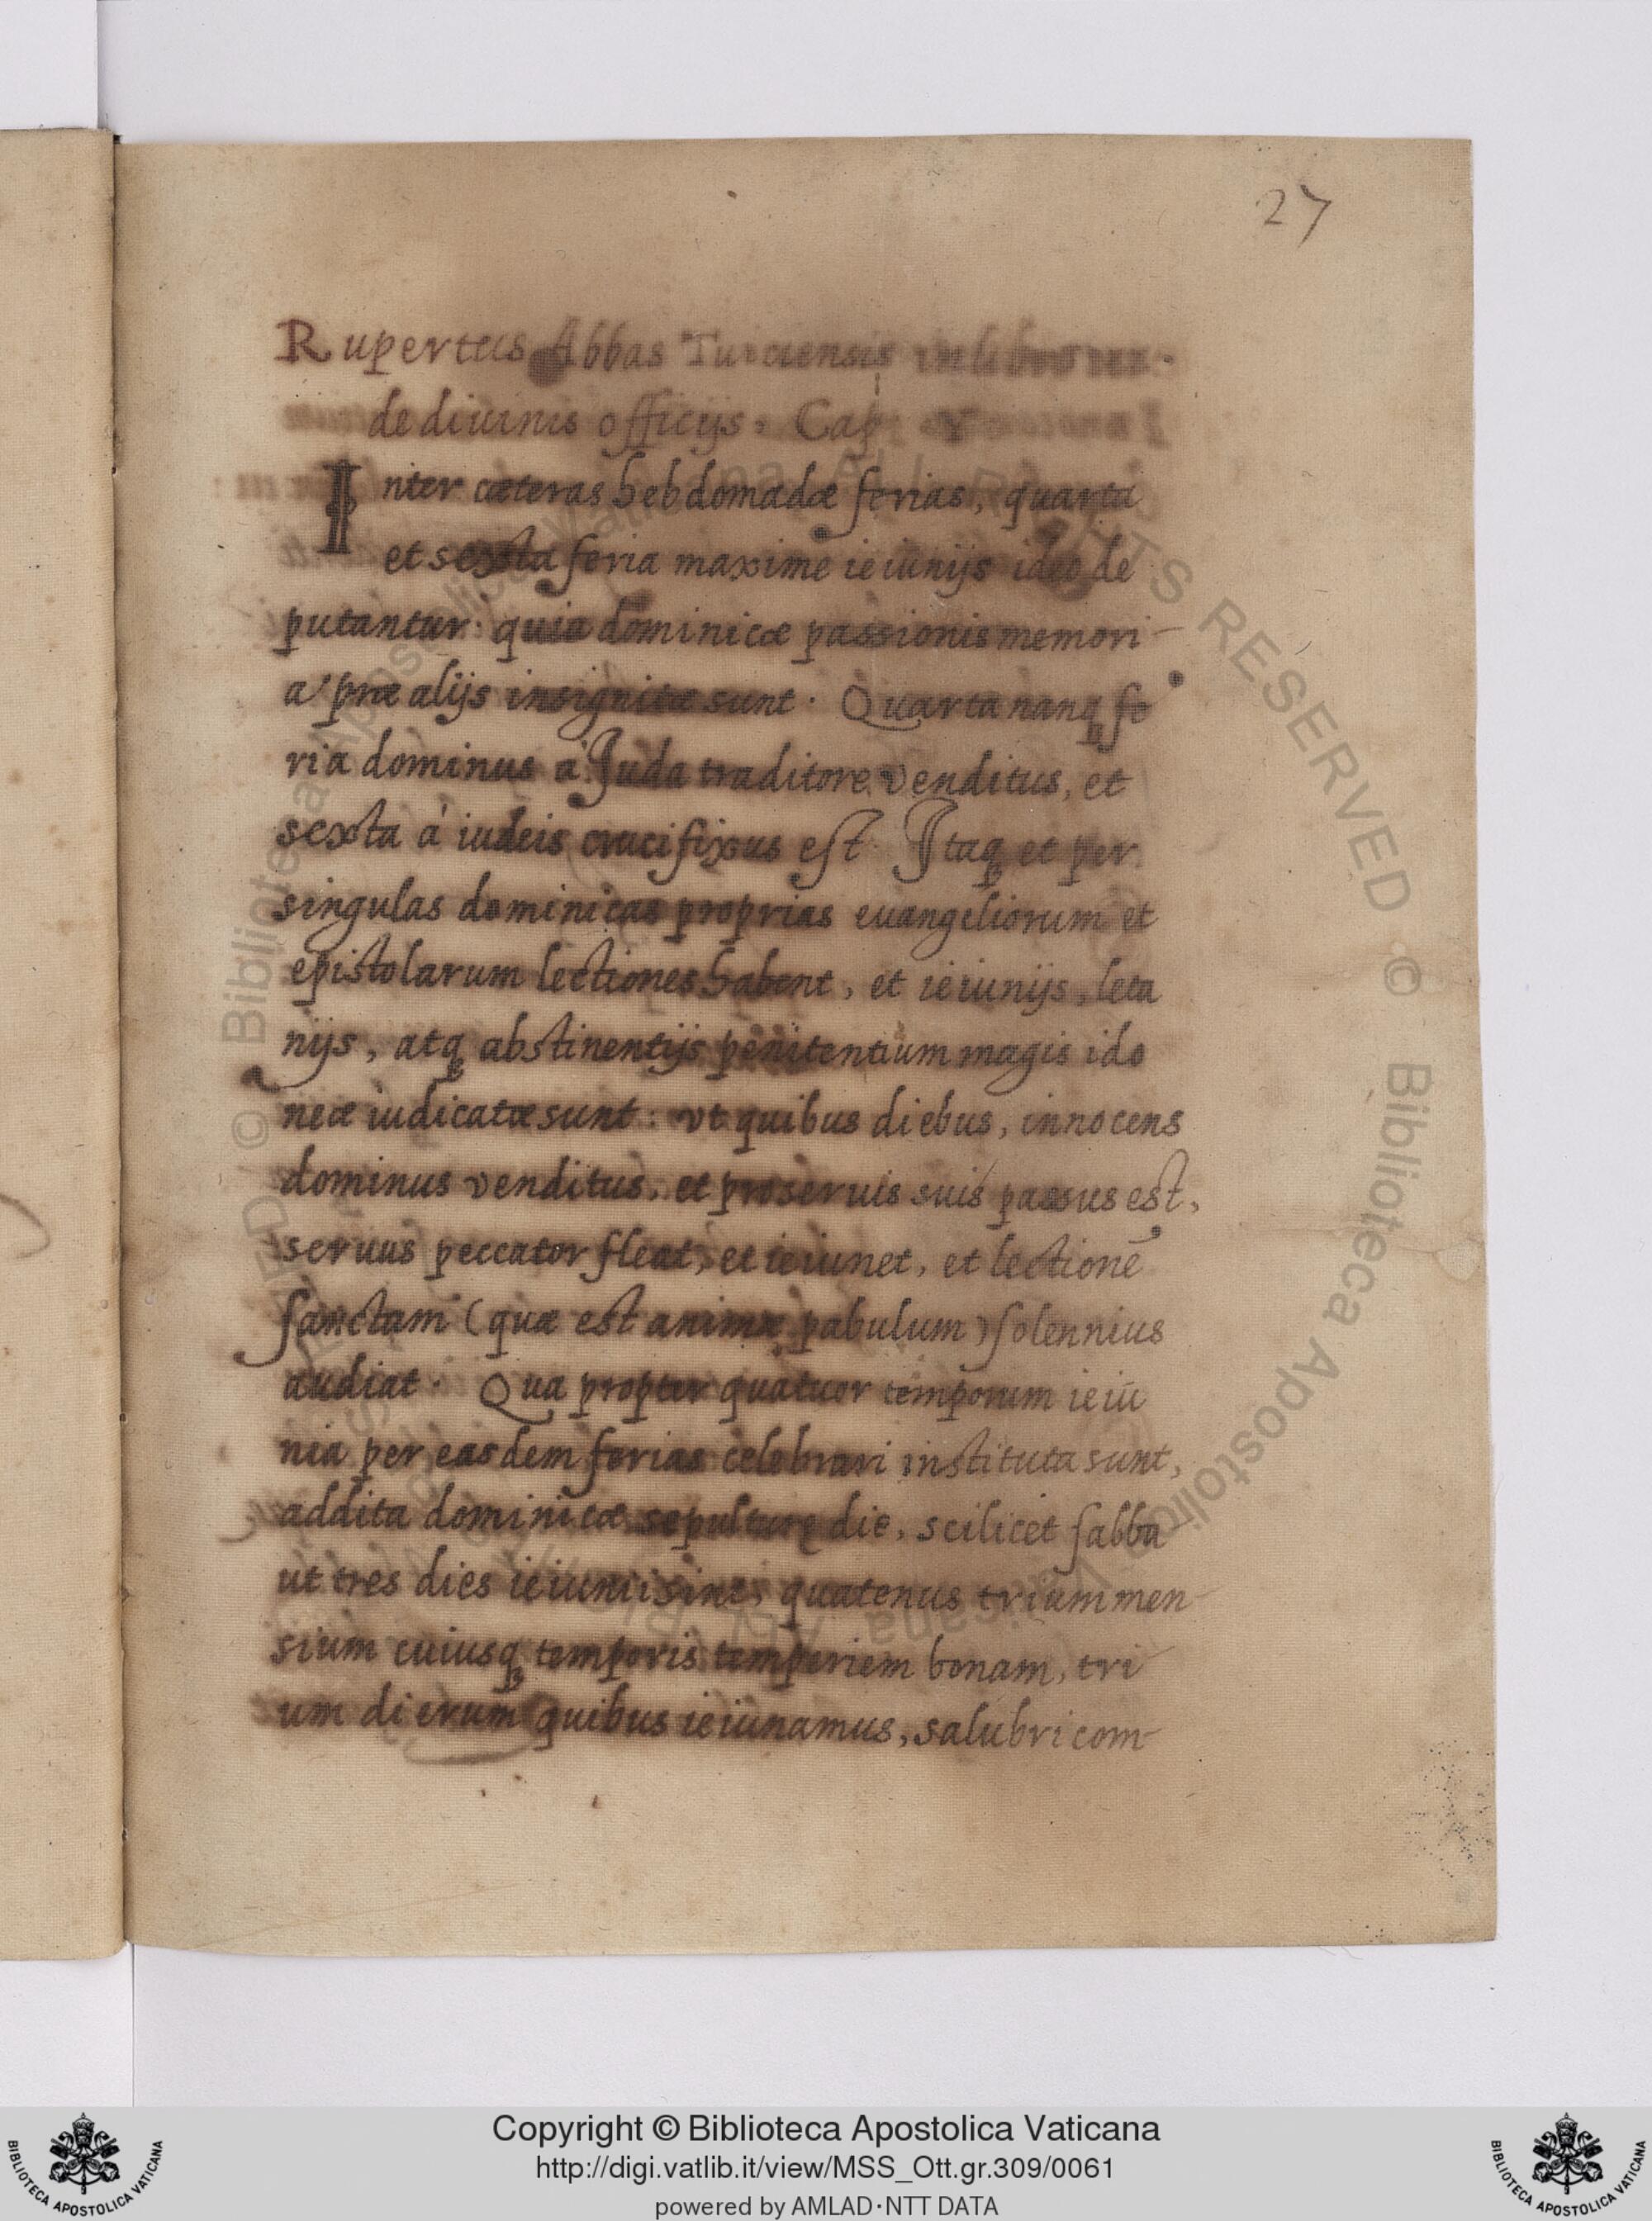 27
Rupertus Abbas Tuiciensis in libro
de diuinis officijs, Cap.
Inter cæteras hebdomadæ ferias, quarta
et sexta feria maxime ieiunijs ideo de
putantur. quia dominicæ passionis memori-
a præ alijs insignitæ sunt. Quarta nanq fe
ria dominus à Juda traditore venditus, et
sexta à iudeis crucifixus est. Itaq et per
singulas dominicas proprias euangeliorum et
epistolarum lectiones habent, et ieiunijs, leta
nijs, atq abstinentijs penitentium magis ido
neæ iudicatæ sunt: vt quibus diebus, innocens
dominus venditus, et pro seruis suis passus est,
seruus peccator fleat, et ieiunet, et lectionē
sanctam (quæ est animæ pabulum) solennius
audiat. Qua propter quatuor temporum ieiu
nia per easdem ferias celebrari instituta sunt,
addita dominicæ sepulturę die, scilicet sabba
ut tres dies ieiunii sint, quatenus trium men-
sium cuiusq temporis temperiem bonam, tri
um dierum quibus ieiunamus, salubri com-
Copyright © Biblioteca Apostolica Vaticana
http://digi.vatlib.it/view/MSS_Ott.gr.309/0061
powered by AMLAD·NTT DATA
BIBLIOTECA APOSTOLICA VATICANA
BIBLIOTECA APOSTOLICA VATICANA